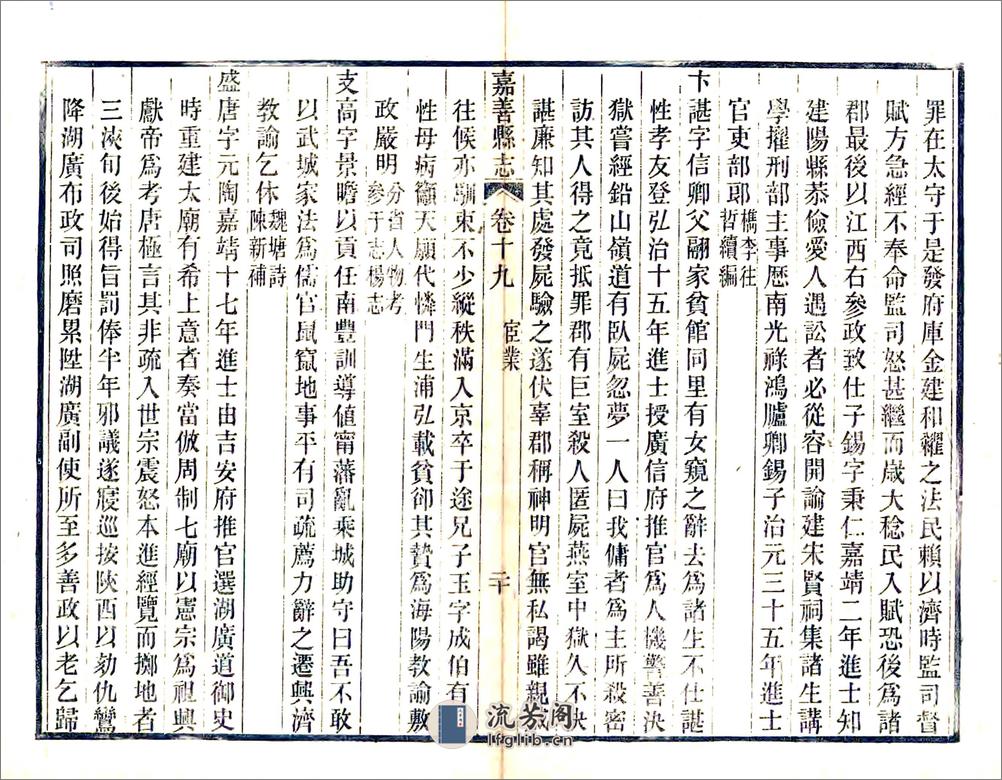 罪在太守于是發府庫金建和糴之法民賴以濟時監司督
賦方急經不奉命監司怒甚繼而歲大稔民入賦恐後爲諸
郡最後以江西右參政致仕子錫字秉仁嘉靖二年進士知
建陽縣恭儉愛人遇訟者必從容開諭建宋賢祠集諸生講
學擢刑部主事歷南光祿鴻臚卿錫子治元三十五年進士
官吏部郎檇李往哲續編
卞諶字信卿父翮家貧館同里有女窺之辭去爲諸生不仕諶
性孝友登弘治十五年進士授廣信府推官爲人機警善決
獄嘗經鉛山嶺道有臥屍忽夢一人曰我傭者爲主所殺密
訪其人得之竟抵罪郡有巨室殺人匿屍燕室中獄久不決
諶廉知其處發屍驗之遂伏辜郡稱神明官無私謁雖親
嘉善縣志
卷十九
宦業
二十
往候亦馴束不少縱秩滿入京卒于途兄子玉字成伯有
性母病籲天願代憐門生浦弘載貧卻其贄爲海陽教諭敷
政嚴明分省人物考參于志楊志
支高字景瞻以貢任南豐訓導値甯藩亂乘城助守曰吾不敢
以武城家法爲儒官鼠竄地事平有司疏薦力辭之遷興濟
教諭乞休魏塘詩陳新補
盛唐字元陶嘉靖十七年進士由吉安府推官選湖廣道御史
時重建太廟有希上意者奏當倣周制七廟以憲宗爲視興
獻帝爲考唐極言其非疏入世宗震怒本進經覽而擲地者
三浹旬後始得旨罰俸半年邪議遂寢巡按陝西以劾仇鸞
降湖廣布政司照磨累陞湖廣副使所至多善政以老乞歸
流芳阁
lfglib.cn